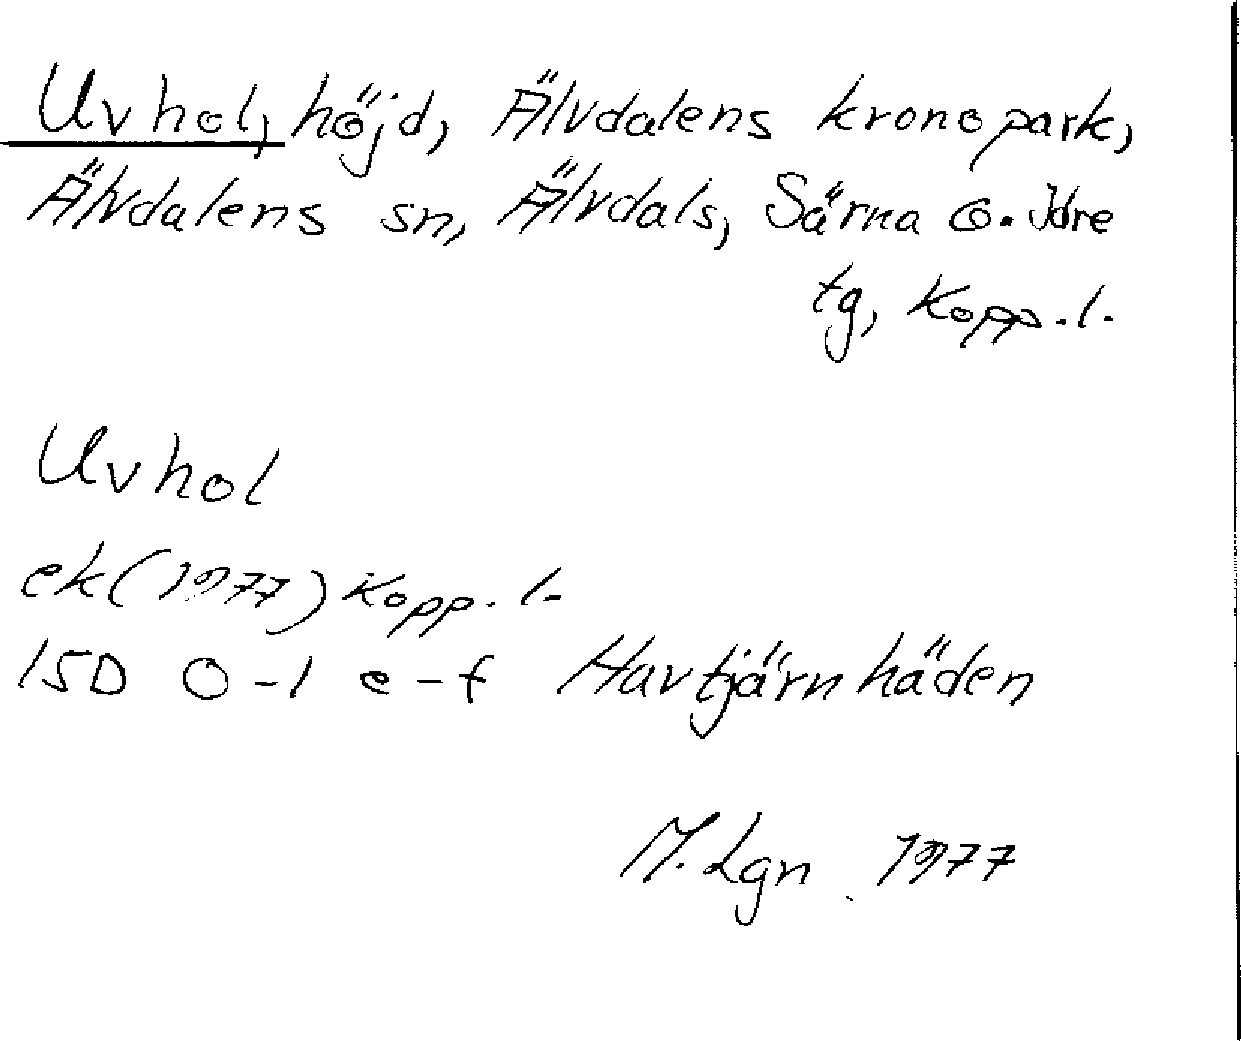 Uvhol, höjd, Älvdalens kronopark,
Älvdalens sn, Älvdals, Särna o. Idre
tg, Kopp.l.
Uvhol
ek(1977) Kopp. l.
15D 0-1 e-f Havtjärnhäden
M. Lgn 1977